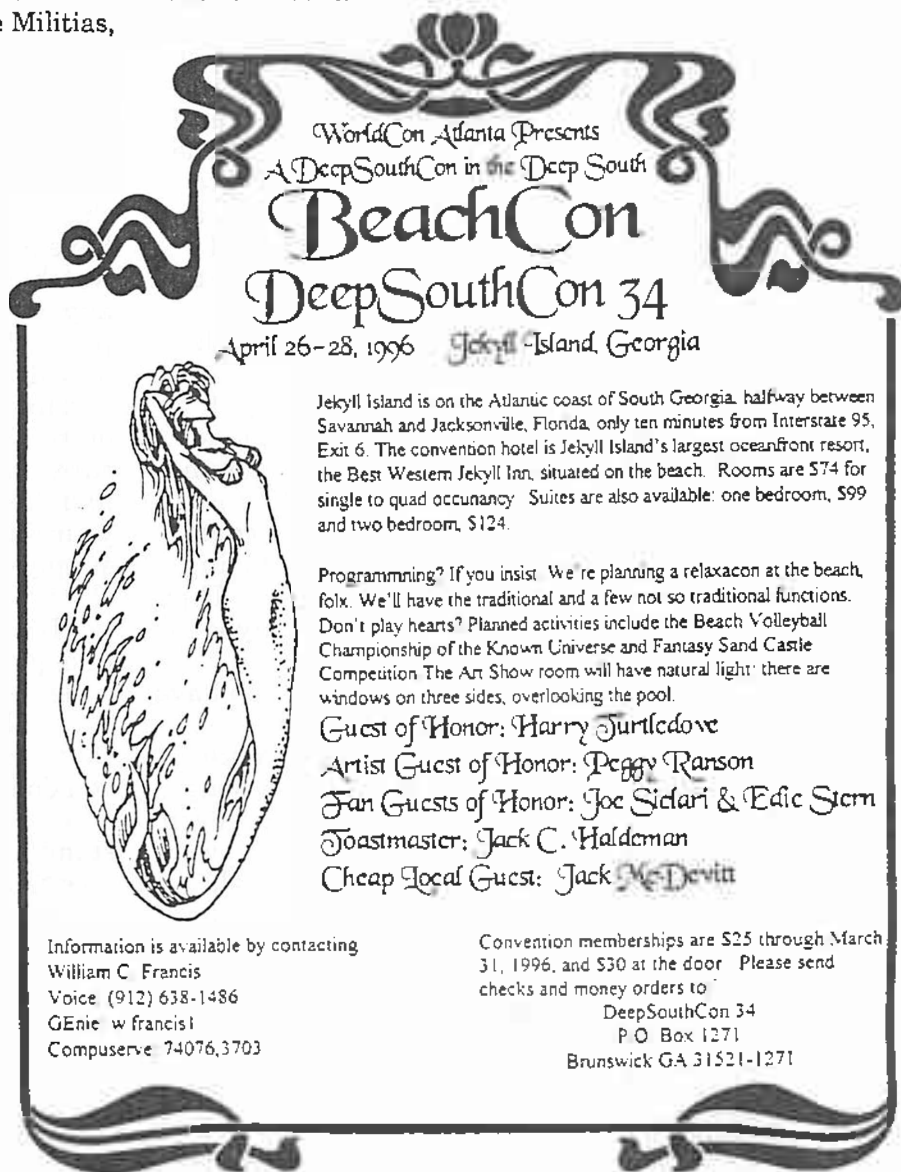 e Militias,
WorldCon Atlanta Presents
A DeepSouthCon in the Deep South
BeachCon
DeepSouthCon 34
April 26-28, 1996 Jekyll Island, Georgia
Jekyll Island is on the Atlantic coast of South Georgia, halfway between
Savannah and Jacksonville, Florida, only ten minutes from Interstate 95,
Exit 6. The convention hotel is Jekyll Island's largest oceanfront resort,
the Best Western Jekyll Inn, situated on the beach. Rooms are $74 for
single to quad occunancy Suites are also available: one bedroom, $99
and two bedroom, $124.
Programmning? If you insist. We're planning a relaxacon at the beach,
folx. We'll have the traditional and a few not so traditional functions.
Don't play hearts? Planned activities include the Beach Volleyball
Championship of the Known Universe and Fantasy Sand Castle
Competition The Art Show room will have natural light: there are
windows on three sides, overlooking the pool.
Guest of Honor: Harry Turtledove
Artist Guest of Honor: Peggy Ranson
Fan Guests of Honor: Joe Siclari & Edie Stern
Toastmaster: Jack C. Haldeman
Cheap Local Guest: Jack McDevitt
Information is available by contacting
William C. Francis
Voice (912) 638-1486
GEnie w francis1
Compuserve 74076,3703
Convention memberships are $25 through March
31, 1996, and $30 at the door Please send
checks and money orders to
DeepSouthCon 34
P O Box 1271
Brunswick GA 31521-1271